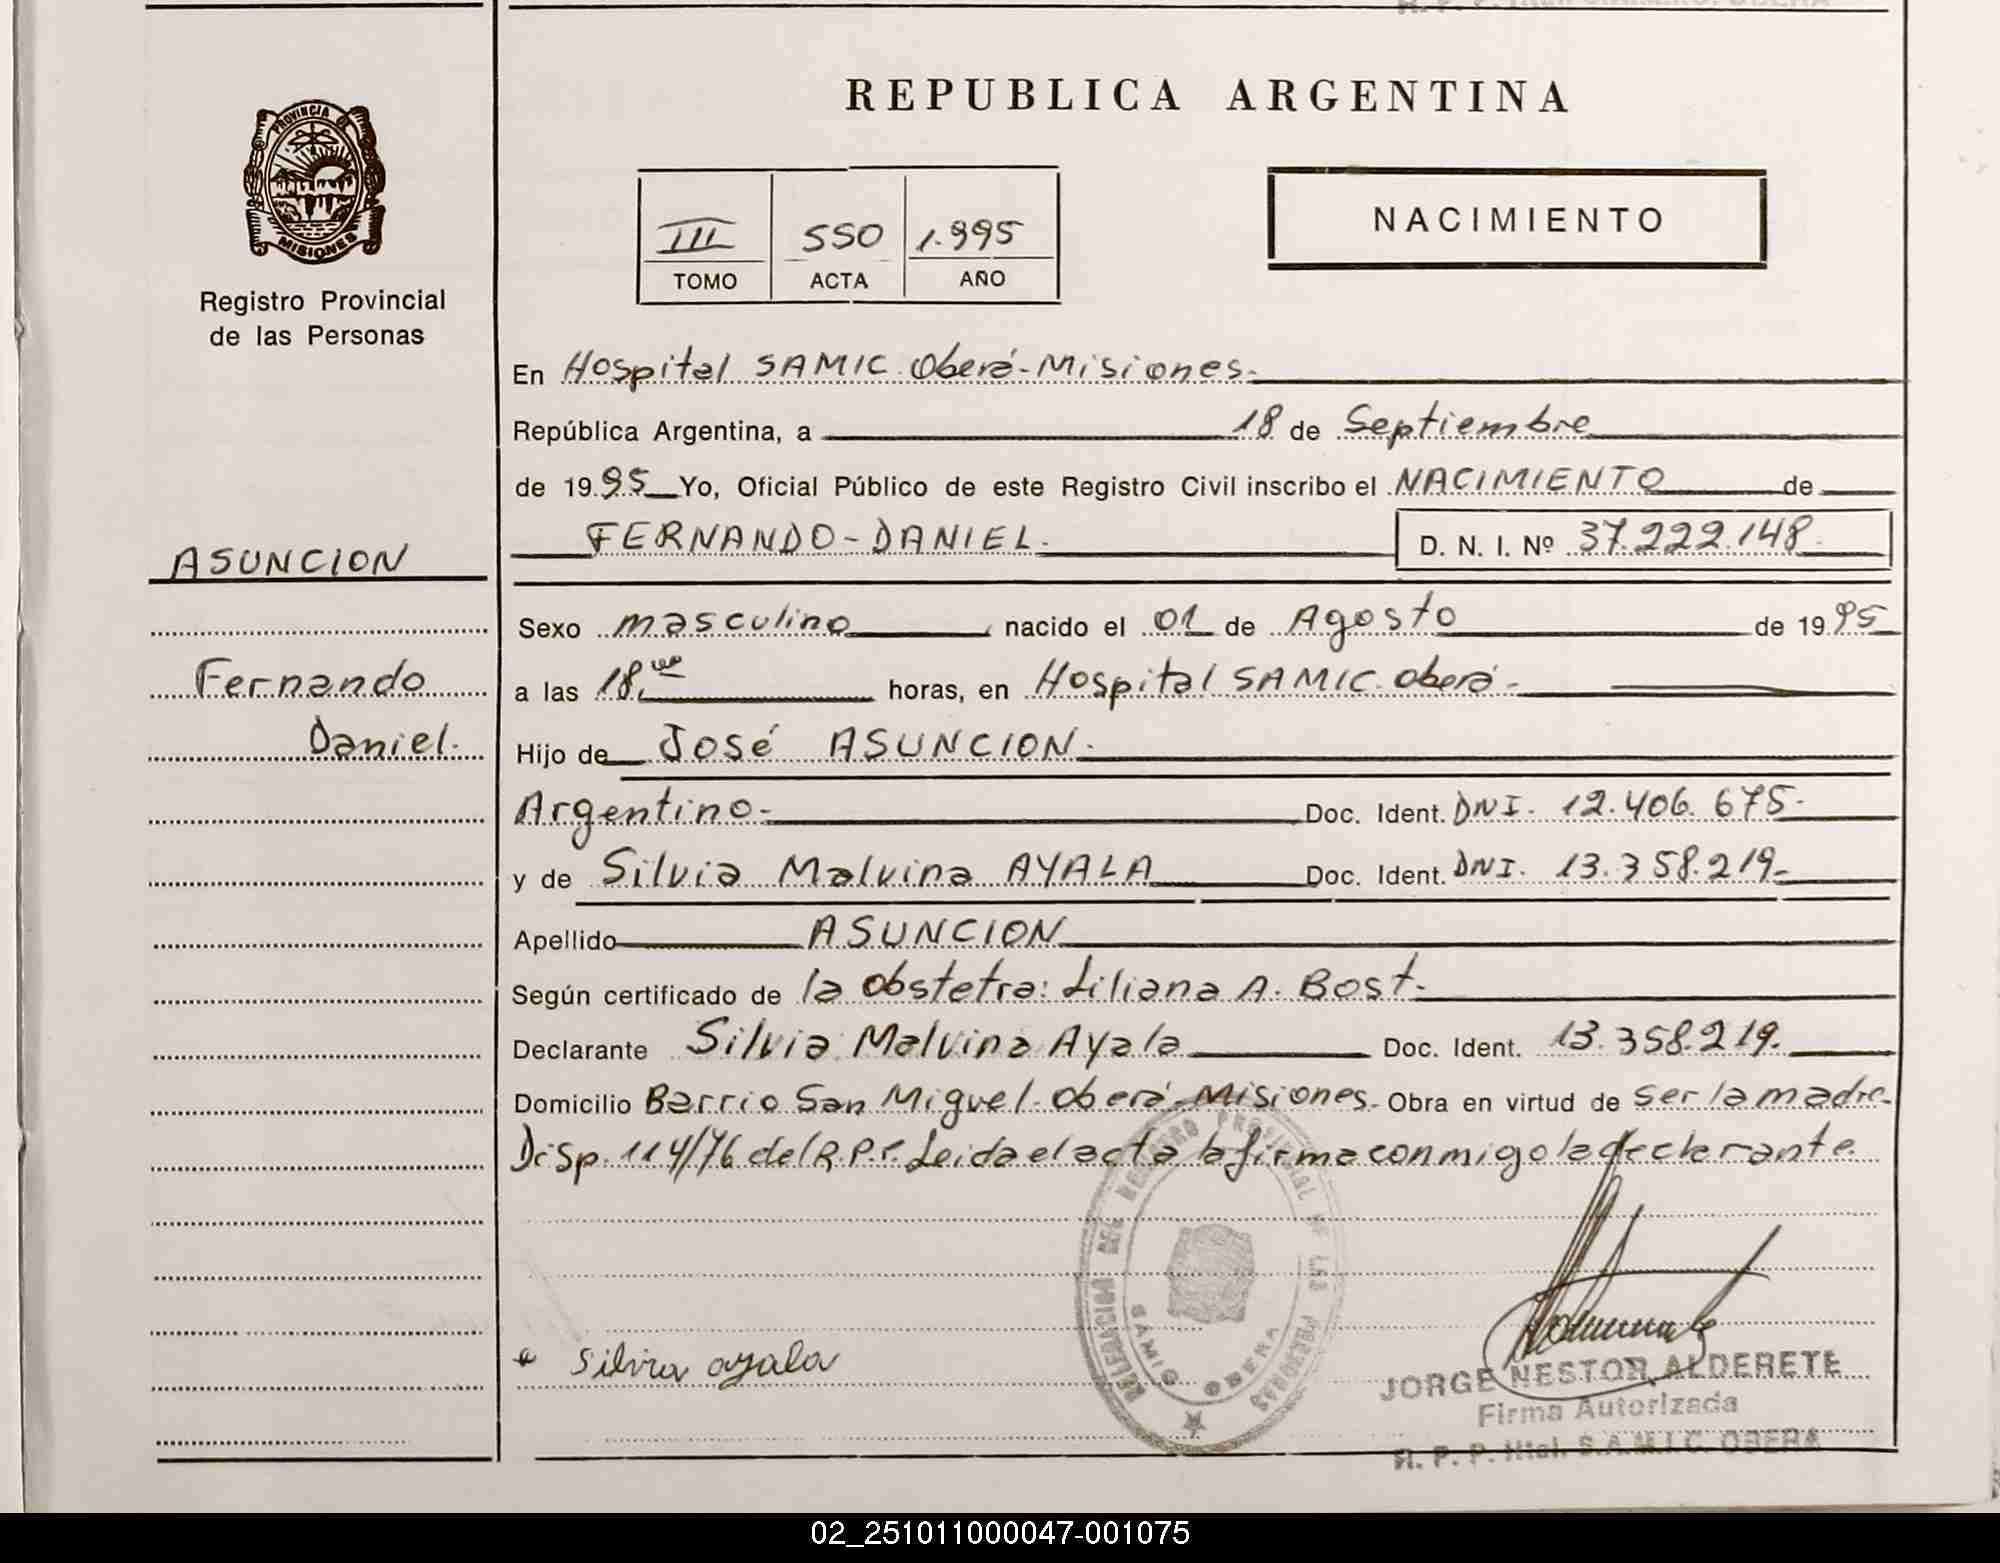 PROVINCIA
MISIONES
Registro Provincial
de las Personas
ASUNCION
Fernando
Daniel.
REPUBLICA ARGENTINA
III 550 1.995
TOMO ACTA AÑO
NACIMIENTO
En Hospital SAMIC. Oberá-Misiones.
República Argentina, a 18 de Septiembre
de 1995 Yo, Oficial Público de este Registro Civil inscribo el NACIMIENTO de
FERNANDO-DANIEL. D. N. I. Nº 37.222.148
Sexo masculino nacido el 01 de Agosto de 1995
a las 18. horas, en Hospital SAMIC. Oberá-
Hijo de José ASUNCION.
Argentino- Doc. Ident. DNI. 12.406.675-
y de Silvia Malvina AYALA Doc. Ident. DNI. 13.358.219-
Apellido ASUNCION
Según certificado de la obstetra: Liliana A. Bost.
Declarante Silvia Malvina Ayala Doc. Ident. 13.358.219.
Domicilio Barrio San Miguel-Oberá-Misiones- Obra en virtud de ser la madre-
Disp. 114/76 del R.P.P. Leida el acta la firma conmigo la declarante.
DELEGACION DEL REGISTRO PROVINCIAL DE LAS PERSONAS
SAMIC OBERA
silvia ayala
JORGE NESTOR ALDERETE
Firma Autorizada
R. P. P. Htal. S.A.M.I.C. OBERA
02_251011000047-001075